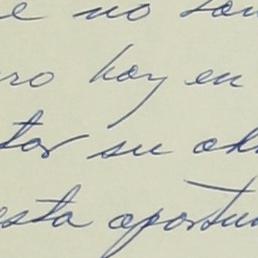 e no son
ero hoy en
tar su ob
esta oportun